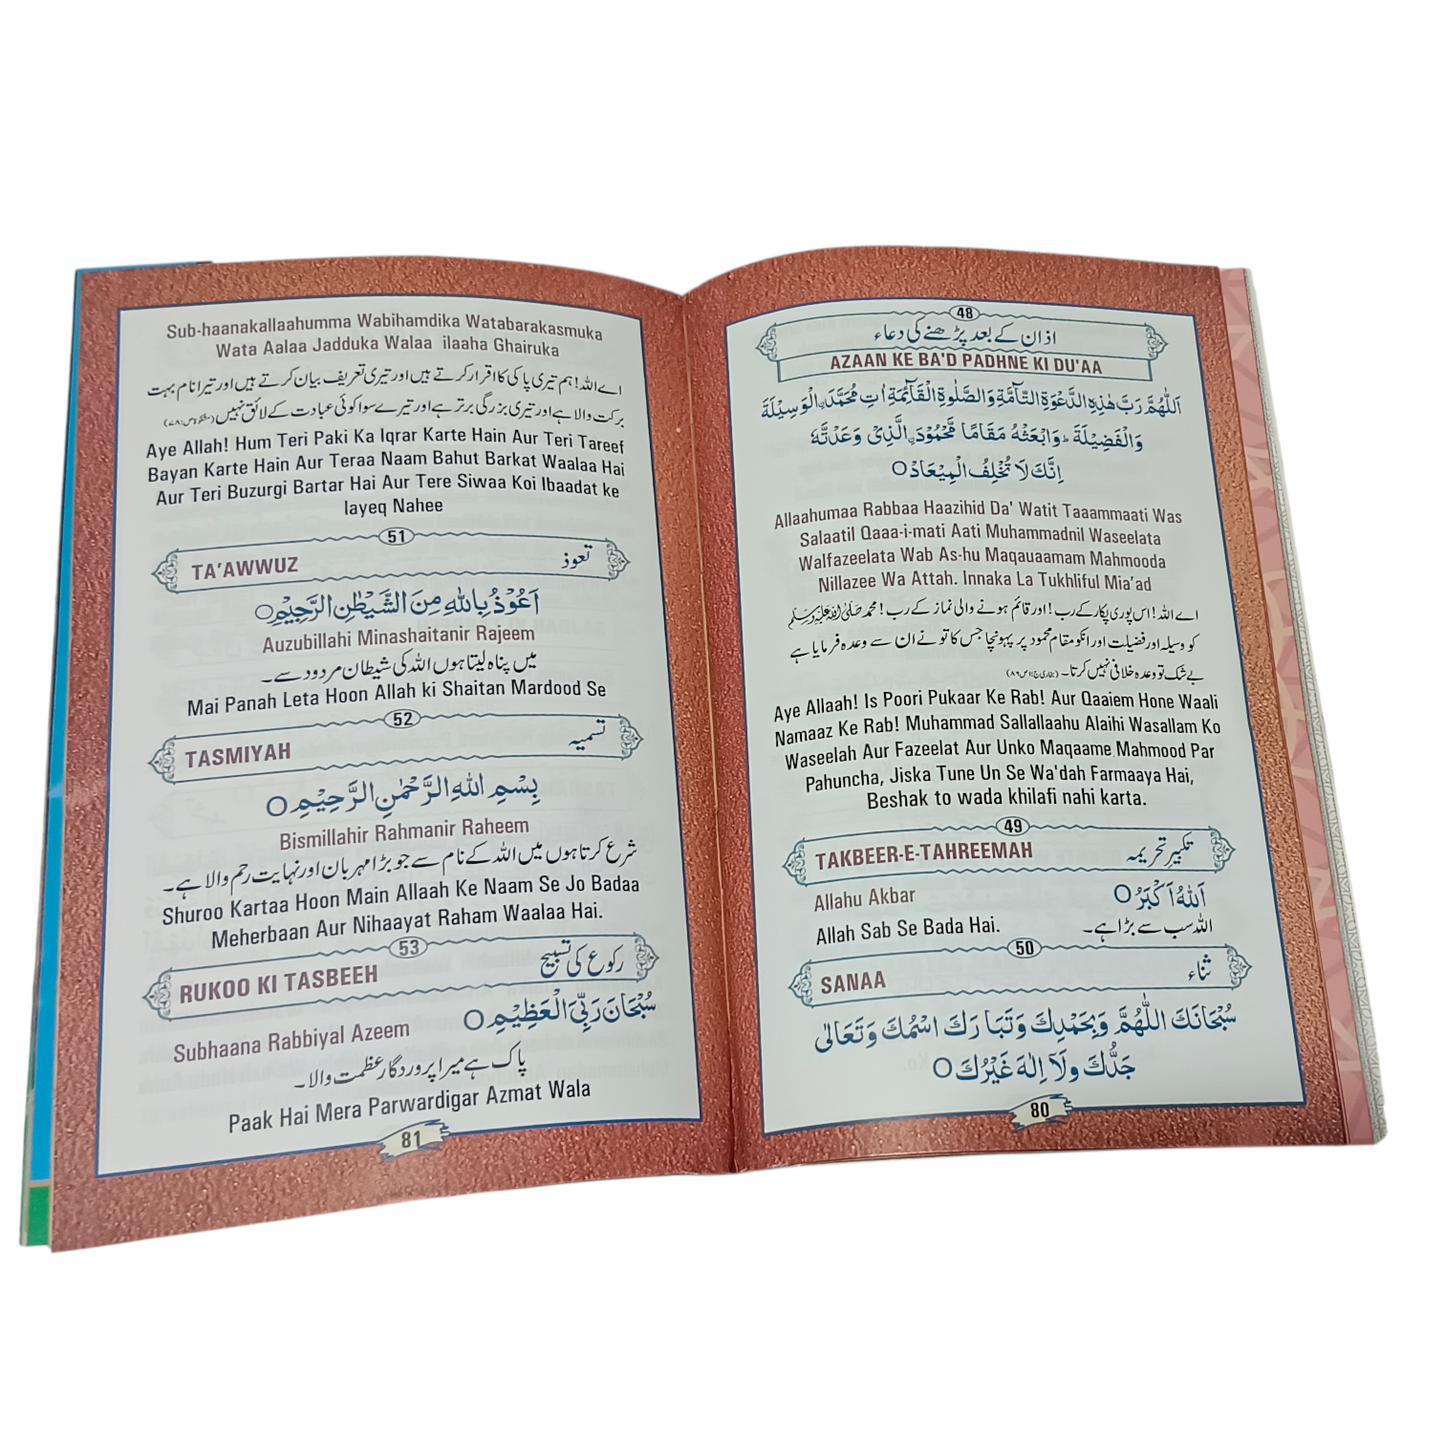 48
اذان کے بعد پڑھنے کی دعاء
AZAAN KE BA'D PADHNE KI DU'AA
اَللّٰهُمَّ رَبَّ هٰذِهِ الدَّعْوَةِ التَّآمَّةِ وَالصَّلٰوةِ الْقَآئِمَةِ اٰتِ مُحَمَّدَنِ الْوَسِيْلَةَ
وَالْفَضِيْلَةَ وَابْعَثْهُ مَقَامًا مَّحْمُوْدَنِ الَّذِىْ وَعَدْتَّهٗ
اِنَّكَ لَا تُخْلِفُ الْمِيْعَادْ○
Allaahumaa Rabbaa Haazihid Da' Watit Taaammaati Was
Salaatil Qaaa-i-mati Aati Muhammadnil Waseelata
Walfazeelata Wab As-hu Maqauaamam Mahmooda
Nillazee Wa Attah. Innaka La Tukhliful Mia'ad
اے اللہ! اس پوری پکار کے رب! اور قائم ہونے والی نماز کے رب! محمد صلی اللہ علیہ وسلم
کو وسیلہ اور فضیلت اور انکو مقام محمود پر پہونچا جس کا تو نے ان سے وعدہ فرمایا ہے
بے شک تو وعدہ خلافی نہیں کرتا۔
Aye Allaah! Is Poori Pukaar Ke Rab! Aur Qaaiem Hone Waali
Namaaz Ke Rab! Muhammad Sallallaahu Alaihi Wasallam Ko
Waseelah Aur Fazeelat Aur Unko Maqaame Mahmood Par
Pahuncha, Jiska Tune Un Se Wa'dah Farmaaya Hai,
Beshak to wada khilafi nahi karta.
49
TAKBEER-E-TAHREEMAH تکبیر تحریمہ
Allahu Akbar اَللّٰهُ اَكْبَرُ○
Allah Sab Se Bada Hai. اللہ سب سے بڑا ہے۔
50
SANAA ثناء
سُبْحَانَكَ اللّٰهُمَّ وَبِحَمْدِكَ وَتَبَارَكَ اسْمُكَ وَتَعَالٰى
جَدُّكَ وَلَآ اِلٰهَ غَيْرُكَ○
80
Sub-haanakallaahumma Wabihamdika Watabarakasmuka
Wata Aalaa Jadduka Walaa ilaaha Ghairuka
اے اللہ! ہم تیری پاکی کا اقرار کرتے ہیں اور تیری تعریف بیان کرتے ہیں اور تیرا نام بہت
برکت والا ہے اور تیری بزرگی برتر ہے اور تیرے سوا کوئی عبادت کے لائق نہیں
Aye Allah! Hum Teri Paki Ka Iqrar Karte Hain Aur Teri Tareef
Bayan Karte Hain Aur Teraa Naam Bahut Barkat Waalaa Hai
Aur Teri Buzurgi Bartar Hai Aur Tere Siwaa Koi Ibaadat ke
layeq Nahee
51
TA'AWWUZ تعوذ
اَعُوْذُ بِاللّٰهِ مِنَ الشَّيْطٰنِ الرَّجِيْمِ○
Auzubillahi Minashaitanir Rajeem
میں پناہ لیتا ہوں اللہ کی شیطان مردود سے۔
Mai Panah Leta Hoon Allah ki Shaitan Mardood Se
52
TASMIYAH تسمیہ
بِسْمِ اللّٰهِ الرَّحْمٰنِ الرَّحِيْمِ○
Bismillahir Rahmanir Raheem
شرع کرتا ہوں میں اللہ کے نام سے جو بڑا مہربان اور نہایت رحم والا ہے۔
Shuroo Kartaa Hoon Main Allaah Ke Naam Se Jo Badaa
Meherbaan Aur Nihaayat Raham Waalaa Hai.
53
RUKOO KI TASBEEH رکوع کی تسبیح
Subhaana Rabbiyal Azeem سُبْحَانَ رَبِّىَ الْعَظِيْمِ○
پاک ہے میرا پروردگار عظمت والا۔
Paak Hai Mera Parwardigar Azmat Wala
81